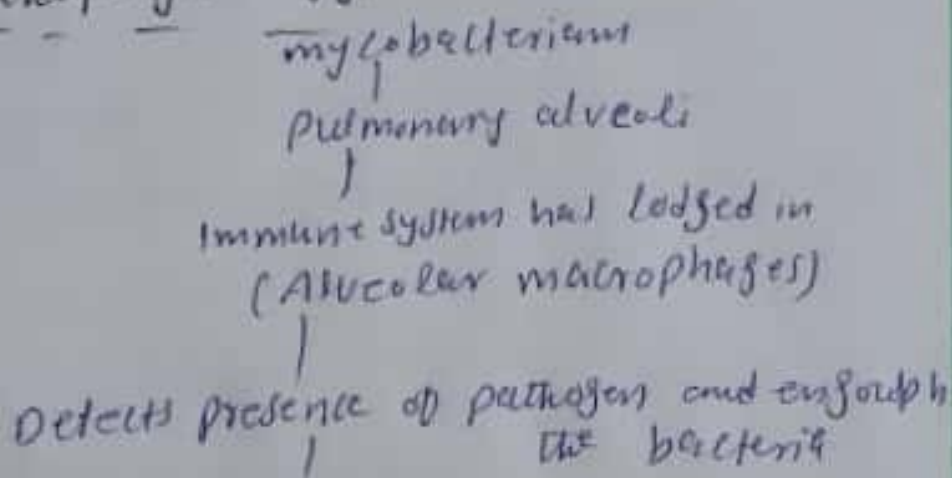 mycobacterium
pulmonary alveoli
Immune system has lodged in
(Alveolar macrophages)
Detects presence of pathogen and
the bacteria